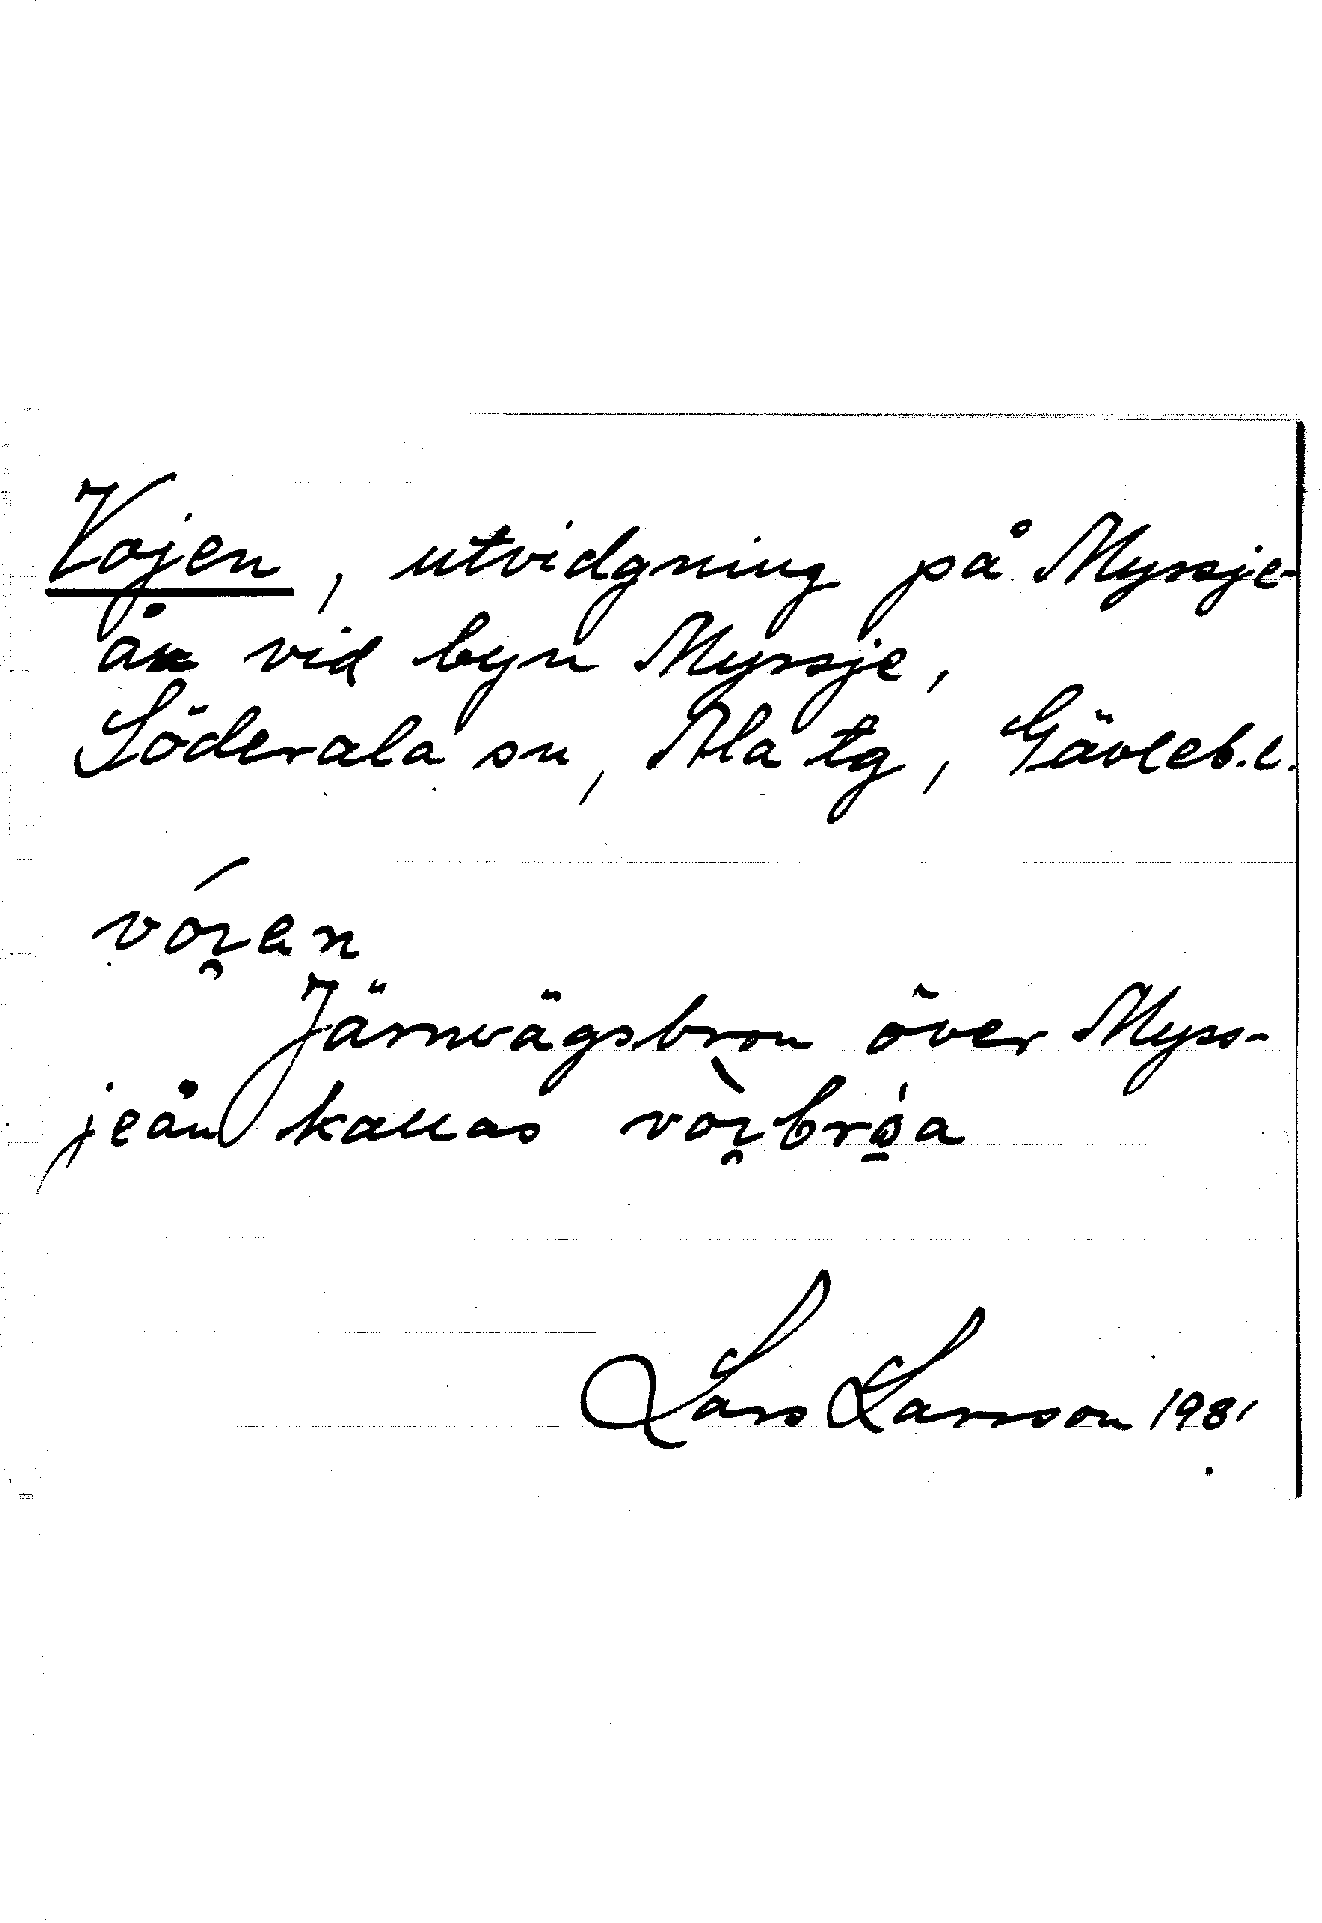 Vojen, utvidgning på Myssje-
ån vid byn Myssje,
Söderala sn, Ala tg, Gävleb.l.
vóı̯en
Järnvägsbron över Myss-
jeån kallas vòı̯bróa
Lars Larsson 1981